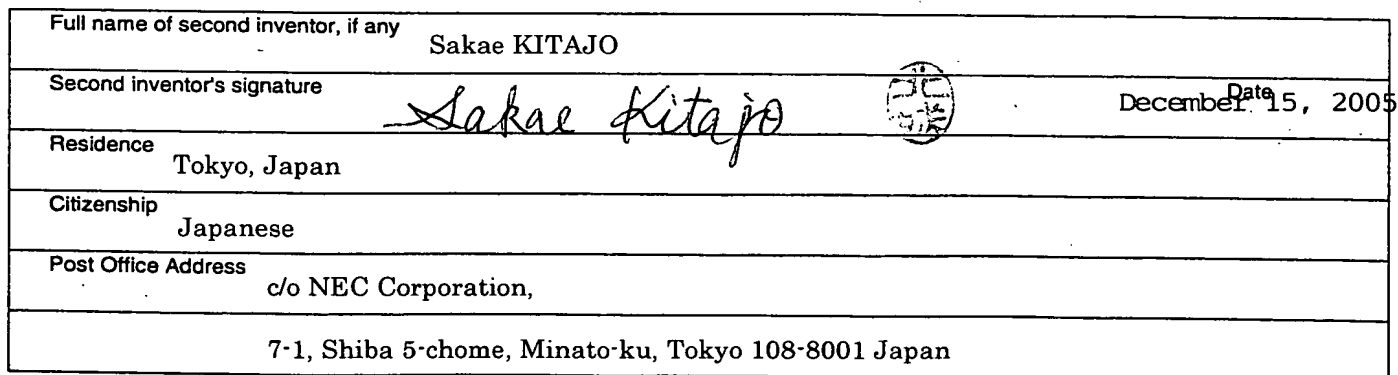 Full name of second inventor, if any
Sakae KITAJO
Second inventor's signature
Sakae Kitajo
Date
December 15, 2005
Residence
Tokyo, Japan
Citizenship
Japanese
Post Office Address
c/o NEC Corporation,
7-1, Shiba 5-chome, Minato-ku, Tokyo 108-8001 Japan